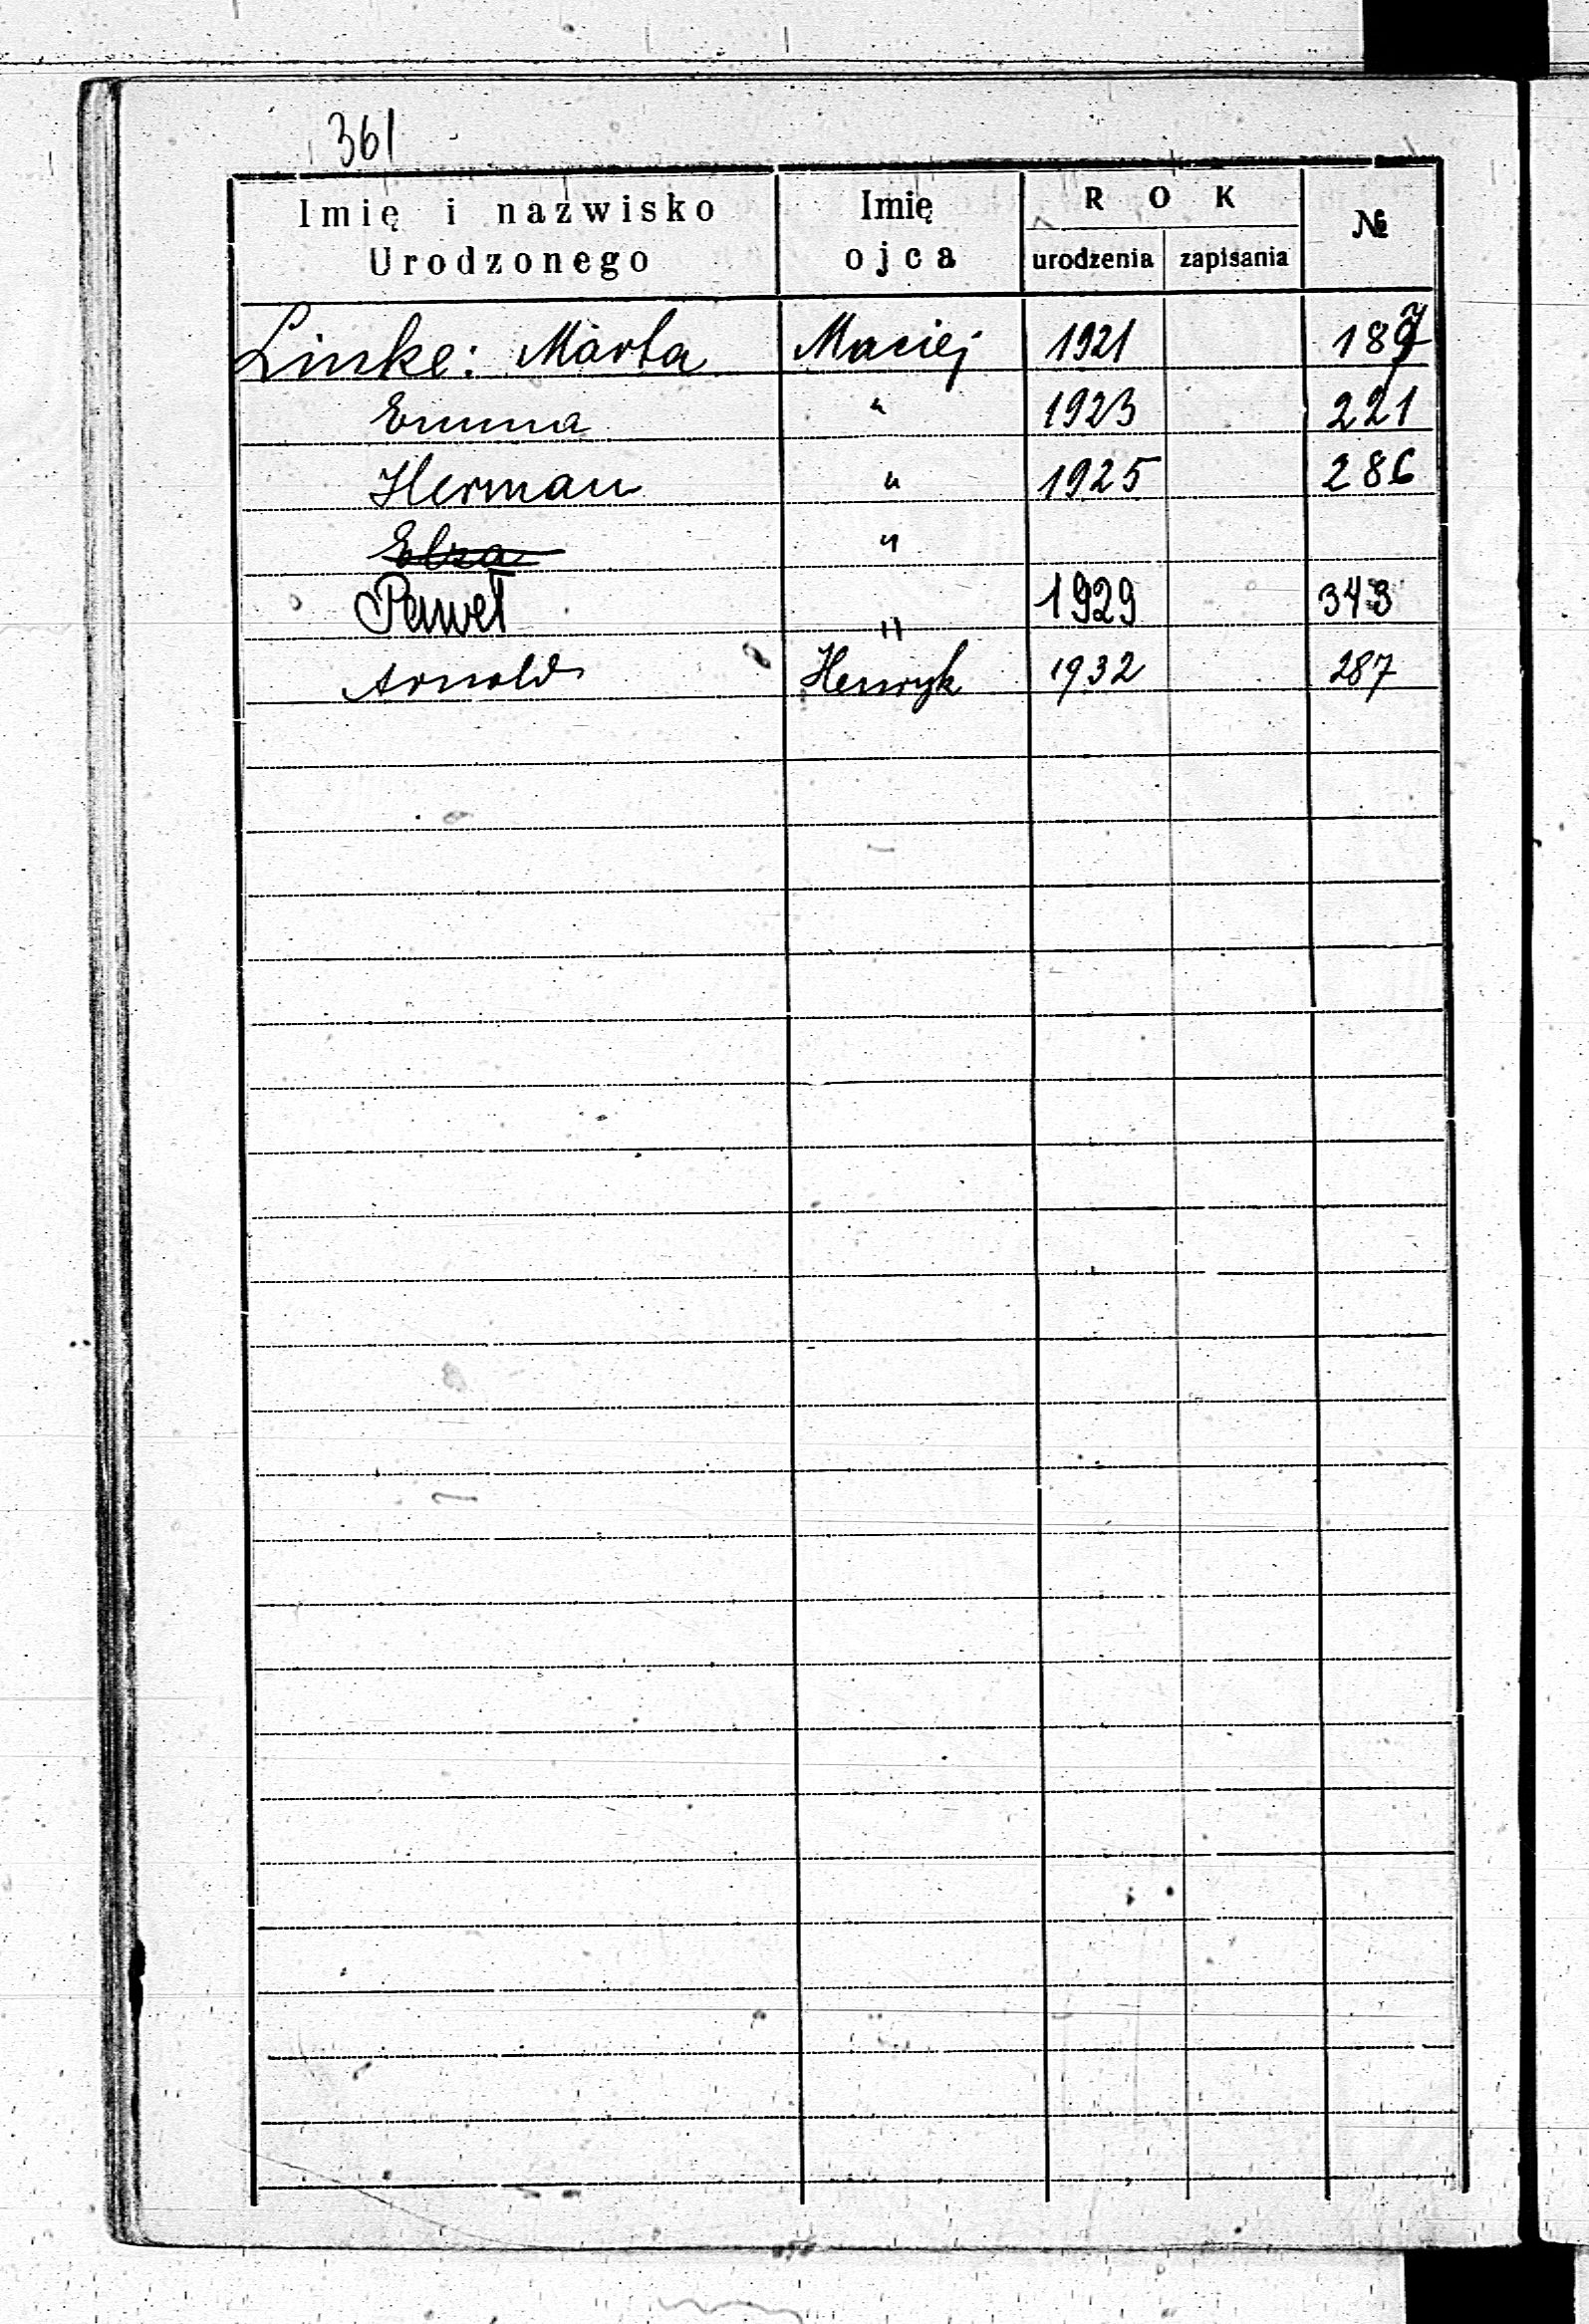 361
Imię i nazwisko Urodzonego | Imię ojca | ROK urodzenia | zapisania | №
Linke: Marta | Maciej | 1921 | | 187
Emma | " | 1923 | | 221
Herman | " | 1925 | | 286
Elza | " | | |
Paweł | " | 1929 | | 343
Arnold | Henryk | 1932 | | 287